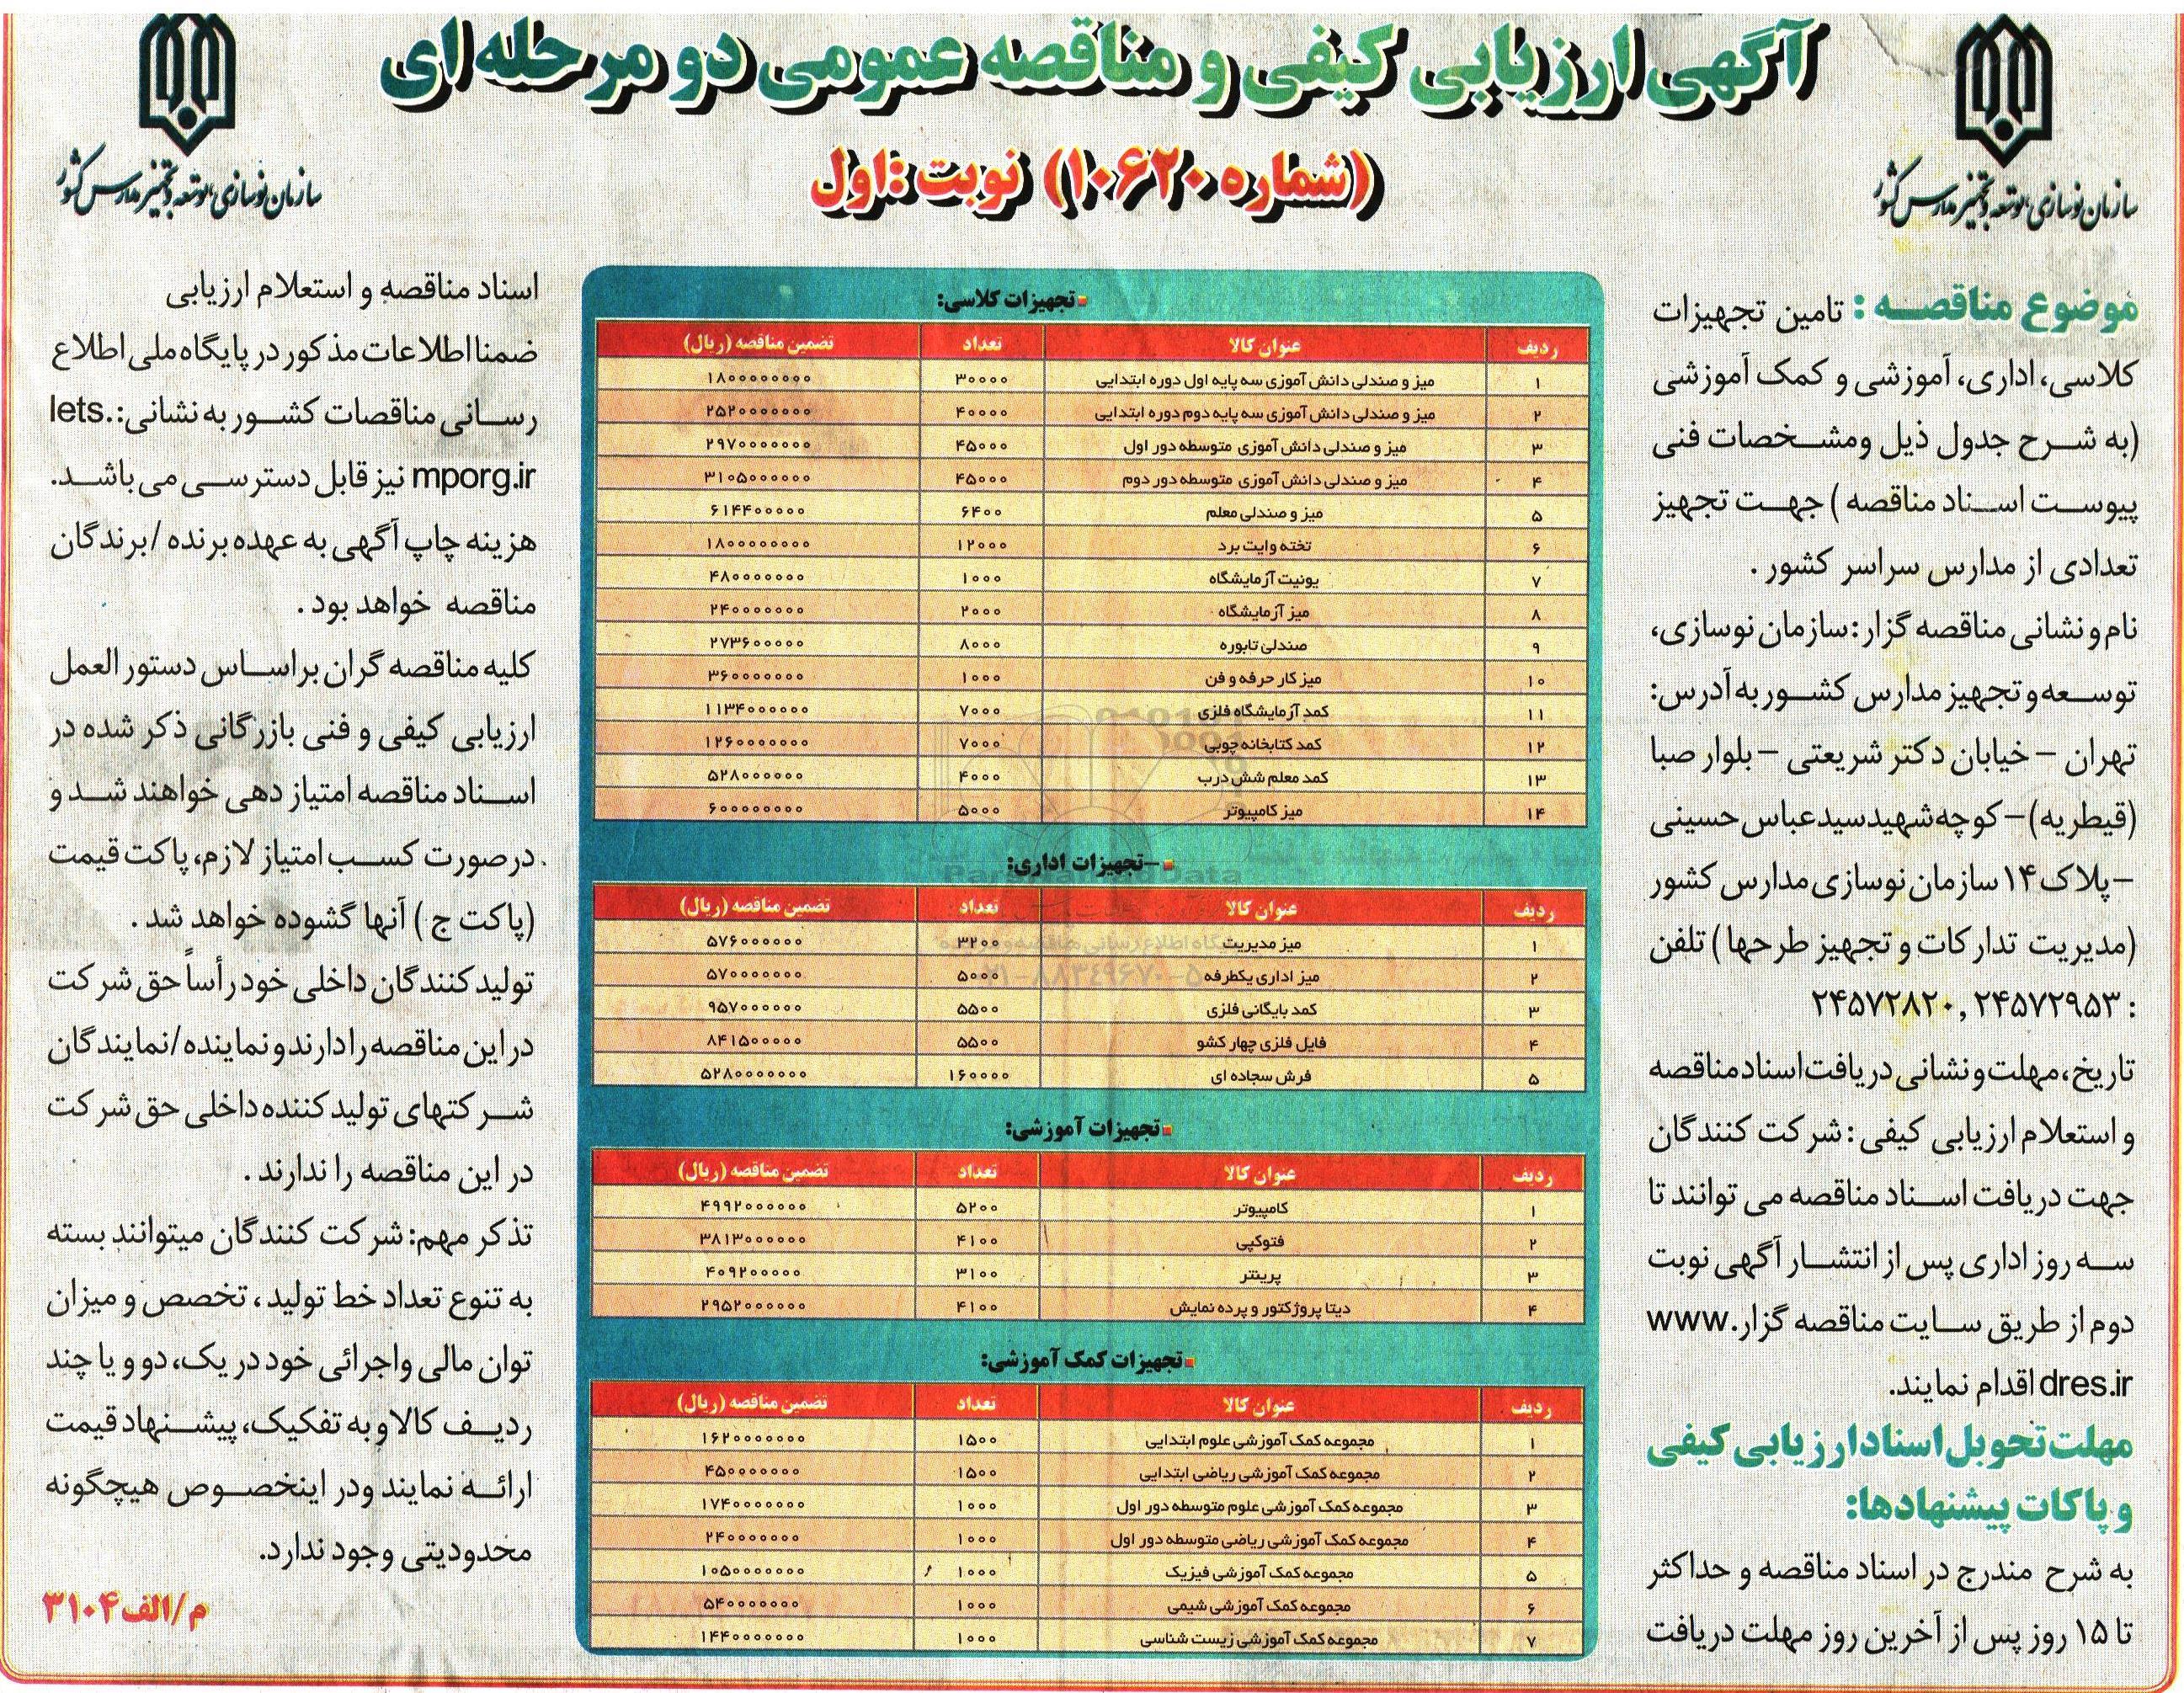 آگهی ارزیابی کیفی و مناقصه عمومی دو مرحله ای
(شماره ۱۰۶۲۰) نوبت :اول
سازمان نوسازی، توسعه و تجهیز مدارس کشور
سازمان نوسازی، توسعه و تجهیز مدارس کشور
موضوع مناقصه : تامین تجهیزات
کلاسی، اداری، آموزشی و کمک آموزشی
(به شرح جدول ذیل ومشخصات فنی
پیوست اسناد مناقصه ) جهت تجهیز
تعدادی از مدارس سراسر کشور .
نام و نشانی مناقصه گزار:سازمان نوسازی،
توسعه و تجهیز مدارس کشور به آدرس:
تهران – خیابان دکتر شریعتی – بلوار صبا
(قیطریه)– کوچه شهید سید عباس حسینی
–پلاک ۱۴ سازمان نوسازی مدارس کشور
(مدیریت تدارکات و تجهیز طرحها ) تلفن
: ۲۴۵۷۲۹۵۳ , ۲۴۵۷۲۸۲۰
تاریخ، مهلت و نشانی دریافت اسناد مناقصه
و استعلام ارزیابی کیفی : شرکت کنندگان
جهت دریافت اسناد مناقصه می توانند تا
سه روز اداری پس از انتشار آگهی نوبت
دوم از طریق سایت مناقصه گزار www.
dres.ir اقدام نمایند.
مهلت تحویل اسناد ارزیابی کیفی
و پاکات پیشنهادها:
به شرح مندرج در اسناد مناقصه و حداکثر
تا ۱۵ روز پس از آخرین روز مهلت دریافت
تجهیزات کلاسی:
ردیف عنوان کالا تعداد تضمین مناقصه (ریال)
۱ میز و صندلی دانش آموزی سه پایه اول دوره ابتدایی ۳۰۰۰۰ ۱۸۰۰۰۰۰۰۰۰
۲ میز و صندلی دانش آموزی سه پایه دوم دوره ابتدایی ۴۰۰۰۰ ۲۵۲۰۰۰۰۰۰۰
۳ میز و صندلی دانش آموزی متوسطه دور اول ۴۵۰۰۰ ۲۹۷۰۰۰۰۰۰۰
۴ میز و صندلی دانش آموزی متوسطه دور دوم ۴۵۰۰۰ ۳۱۰۵۰۰۰۰۰۰
۵ میز و صندلی معلم ۶۴۰۰ ۶۱۴۴۰۰۰۰۰
۶ تخته وایت برد ۱۲۰۰۰ ۱۸۰۰۰۰۰۰۰۰
۷ یونیت آزمایشگاه ۱۰۰۰ ۴۸۰۰۰۰۰۰۰
۸ میز آزمایشگاه ۲۰۰۰ ۲۴۰۰۰۰۰۰۰
۹ صندلی تابوره ۸۰۰۰ ۲۷۳۶۰۰۰۰۰
۱۰ میز کار حرفه و فن ۱۰۰۰ ۳۶۰۰۰۰۰۰۰
۱۱ کمد آزمایشگاه فلزی ۷۰۰۰ ۱۱۳۴۰۰۰۰۰۰
۱۲ کمد کتابخانه چوبی ۷۰۰۰ ۱۲۶۰۰۰۰۰۰۰
۱۳ کمد معلم شش درب ۴۰۰۰ ۵۲۸۰۰۰۰۰۰
۱۴ میز کامپیوتر ۵۰۰۰ ۶۰۰۰۰۰۰۰۰
–تجهیزات اداری:
ردیف عنوان کالا تعداد تضمین مناقصه (ریال)
۱ میز مدیریت ۳۲۰۰ ۵۷۶۰۰۰۰۰۰
۲ میز اداری یکطرفه ۵۰۰۰ ۵۷۰۰۰۰۰۰۰
۳ کمد بایگانی فلزی ۵۵۰۰ ۹۵۷۰۰۰۰۰۰
۴ فایل فلزی چهار کشو ۵۵۰۰ ۸۴۱۵۰۰۰۰۰
۵ فرش سجاده ای ۱۶۰۰۰۰ ۵۲۸۰۰۰۰۰۰۰
تجهیزات آموزشی:
ردیف عنوان کالا تعداد تضمین مناقصه (ریال)
۱ کامپیوتر ۵۲۰۰ ۴۹۹۲۰۰۰۰۰۰
۲ فتوکپی ۴۱۰۰ ۳۸۱۳۰۰۰۰۰۰
۳ پرینتر ۳۱۰۰ ۴۰۹۲۰۰۰۰۰
۴ دیتا پروژکتور و پرده نمایش ۴۱۰۰ ۲۹۵۲۰۰۰۰۰۰
تجهیزات کمک آموزشی:
ردیف عنوان کالا تعداد تضمین مناقصه (ریال)
۱ مجموعه کمک آموزشی علوم ابتدایی ۱۵۰۰ ۱۶۲۰۰۰۰۰۰۰
۲ مجموعه کمک آموزشی ریاضی ابتدایی ۱۵۰۰ ۴۵۰۰۰۰۰۰۰
۳ مجموعه کمک آموزشی علوم متوسطه دور اول ۱۰۰۰ ۱۷۴۰۰۰۰۰۰۰
۴ مجموعه کمک آموزشی ریاضی متوسطه دور اول ۱۰۰۰ ۲۴۰۰۰۰۰۰۰
۵ مجموعه کمک آموزشی فیزیک ۱۰۰۰ ۱۰۵۰۰۰۰۰۰۰
۶ مجموعه کمک آموزشی شیمی ۱۰۰۰ ۵۴۰۰۰۰۰۰۰
۷ مجموعه کمک آموزشی زیست شناسی ۱۰۰۰ ۱۴۴۰۰۰۰۰۰۰
اسناد مناقصه و استعلام ارزیابی
ضمنا اطلاعات مذکور در پایگاه ملی اطلاع
رسانی مناقصات کشور به نشانی: .Iets
mporg.ir نیز قابل دسترسی می باشد.
هزینه چاپ آگهی به عهده برنده /برندگان
مناقصه خواهد بود .
کلیه مناقصه گران براساس دستور العمل
ارزیابی کیفی و فنی بازرگانی ذکر شده در
اسناد مناقصه امتیاز دهی خواهند شد و
درصورت کسب امتیاز لازم، پاکت قیمت
(پاکت ج ) آنها گشوده خواهد شد .
تولید کنندگان داخلی خود رأساً حق شرکت
در این مناقصه را دارند و نماینده/نمایندگان
شرکتهای تولید کننده داخلی حق شرکت
در این مناقصه را ندارند .
تذکر مهم: شرکت کنندگان میتوانند بسته
به تنوع تعداد خط تولید ، تخصص و میزان
توان مالی واجرائی خود در یک، دو و یا چند
ردیف کالا و به تفکیک، پیشنهاد قیمت
ارائه نمایند ودر اینخصوص هیچگونه
محدودیتی وجود ندارد.
م/الف ۳۱۰۴
ParsNamadData
۰۲۱-۸۸۳۴۹۶۷۰-۵